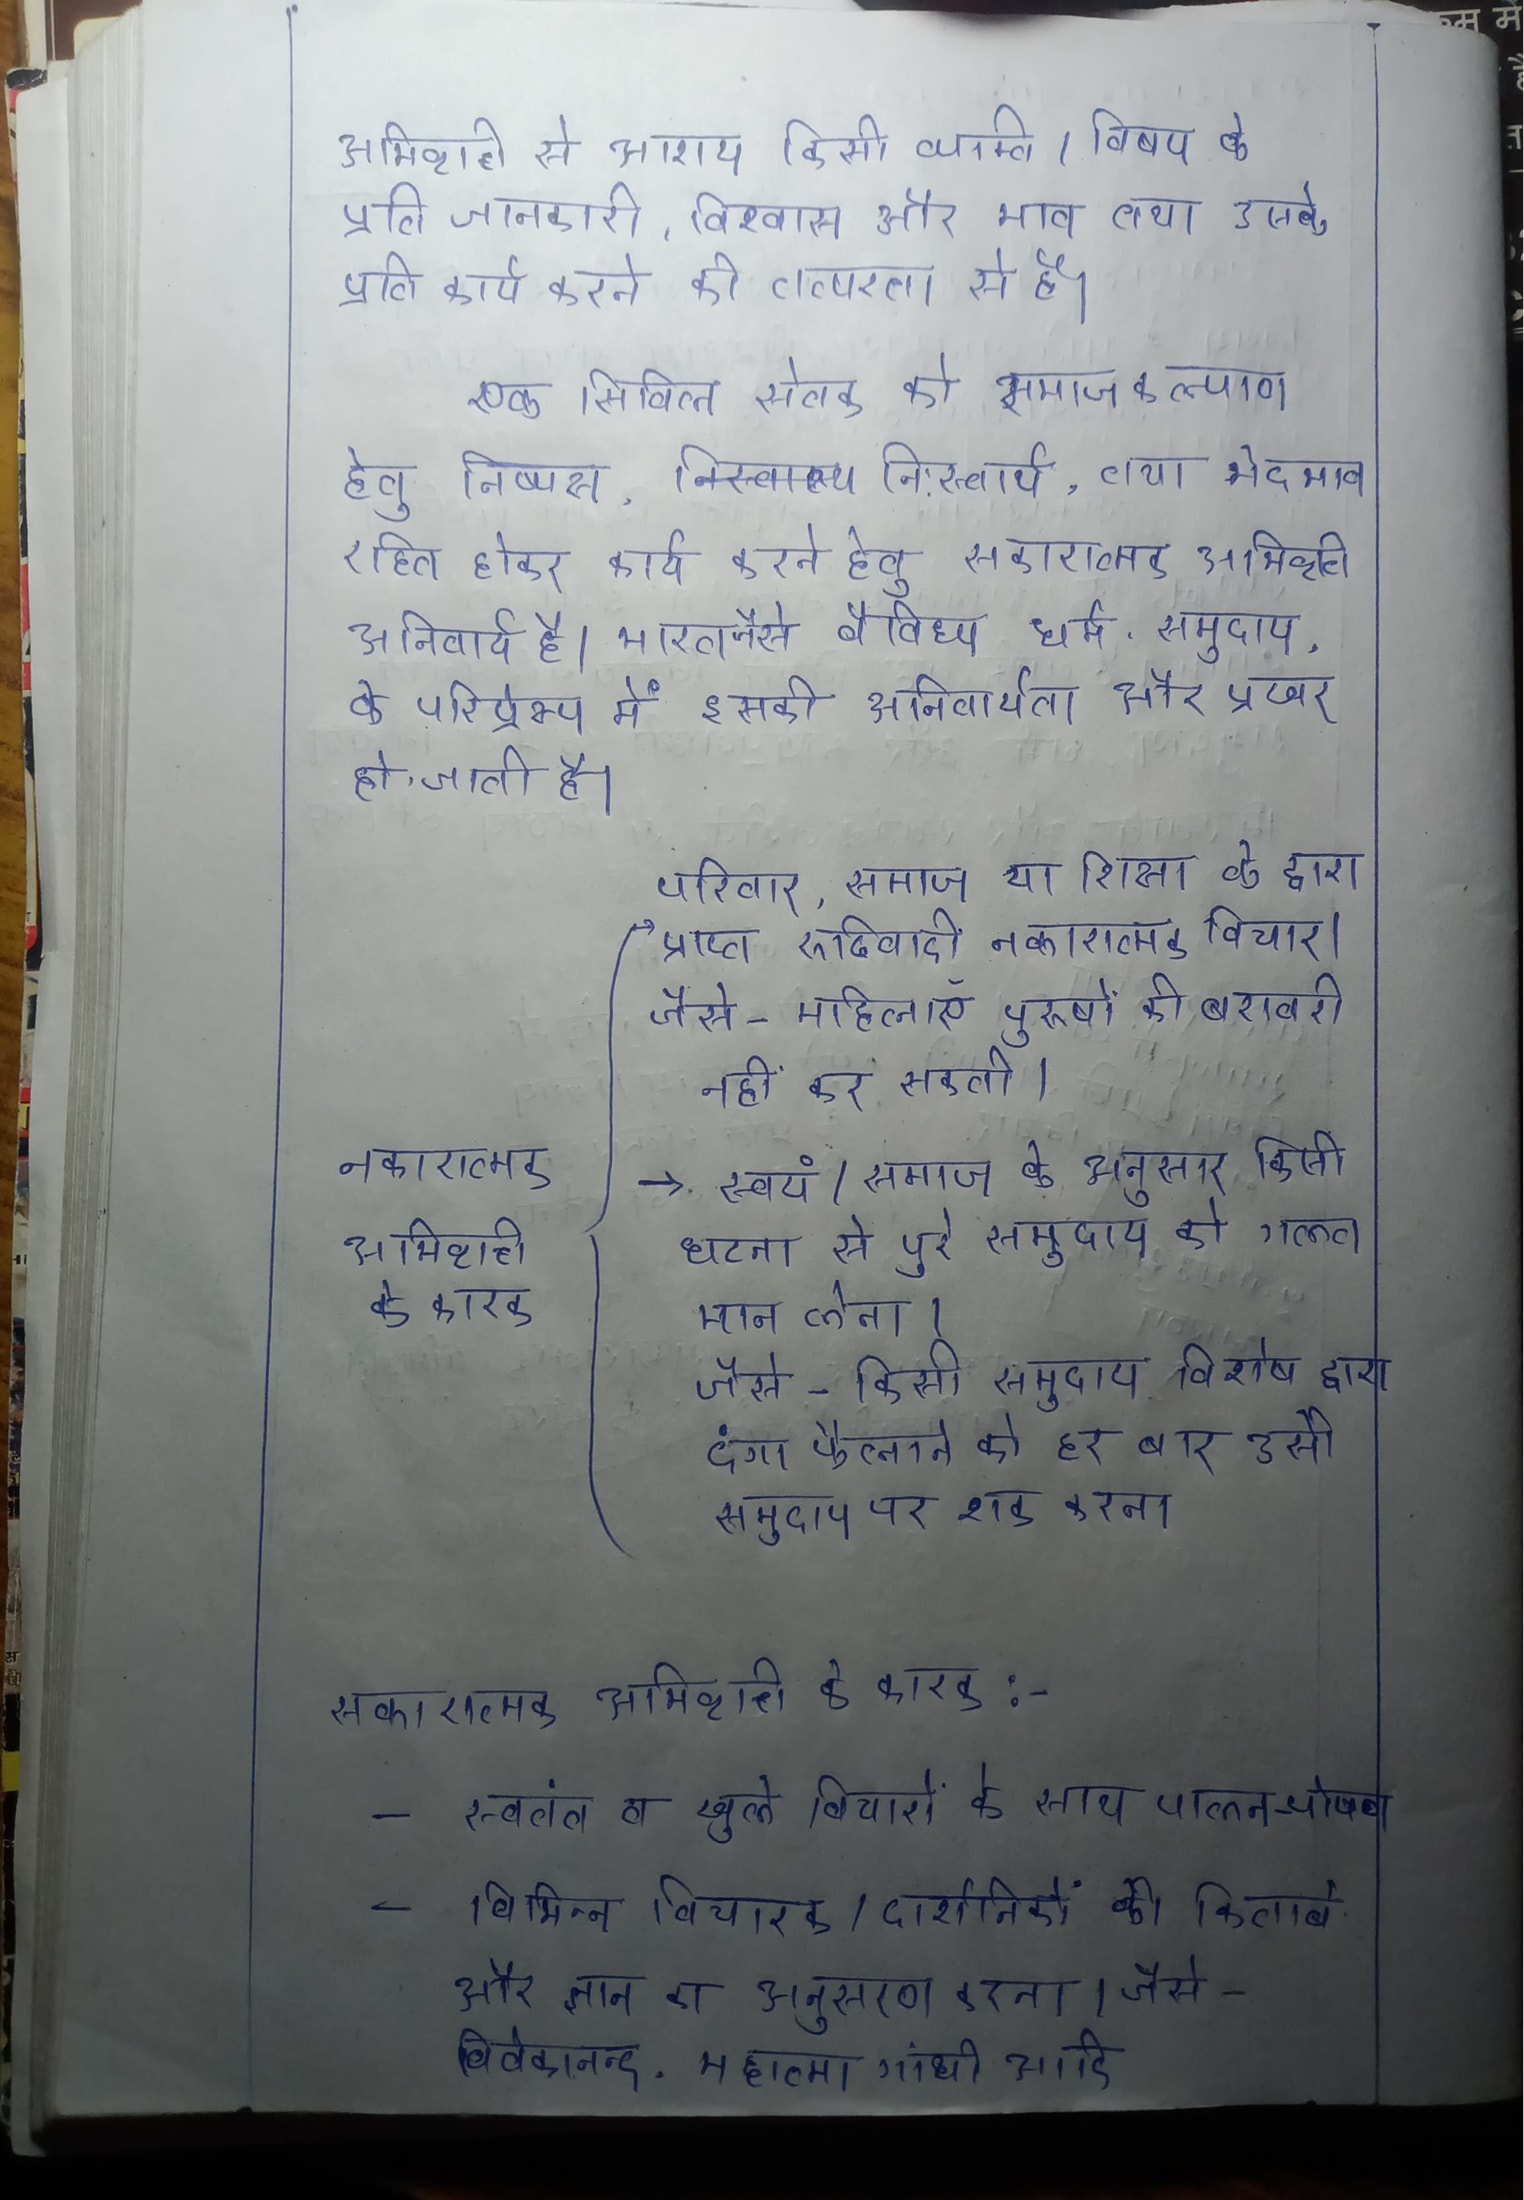 अभिवृत्ति से आशय किसी व्यक्ति / विषय के
प्रति जानकारी, विश्वास और भाव तथा उसके
प्रति कार्य करने की तत्परता से है।
एक सिविल सेवक को समाज कल्याण
हेतु निष्पक्ष, निस्वार्थ्य निःस्वार्थ, तथा भेदभाव
रहित होकर कार्य करने हेतु सकारात्मक अभिवृत्ति
अनिवार्य है। भारत जैसे वैविध्य धर्म, समुदाय,
के परिप्रेक्ष्य में इसकी अनिवार्यता और प्रखर
हो जाती है।
नकारात्मक
अभिवृत्ति
के कारक
परिवार, समाज या शिक्षा के द्वारा
प्राप्त रूढिवादी नकारात्मक विचार।
जैसे - महिलाएँ पुरूषों की बराबरी
नहीं कर सकती।
→ स्वयं / समाज के अनुसार किसी
घटना से पुरे समुदाय को गलत
मान लेना।
जैसे - किसी समुदाय विशेष द्वारा
दंगा फैलाने को हर बार उसी
समुदाय पर शक करना
सकारात्मक अभिवृत्ति के कारक :-
- स्वतंत्र व खुले विचारों के साथ पालन-पोषण
- विभिन्न विचारक / दार्शनिकों की किताबे
और ज्ञान का अनुसरण करना। जैसे -
विवेकानन्द, महात्मा गांधी आदि